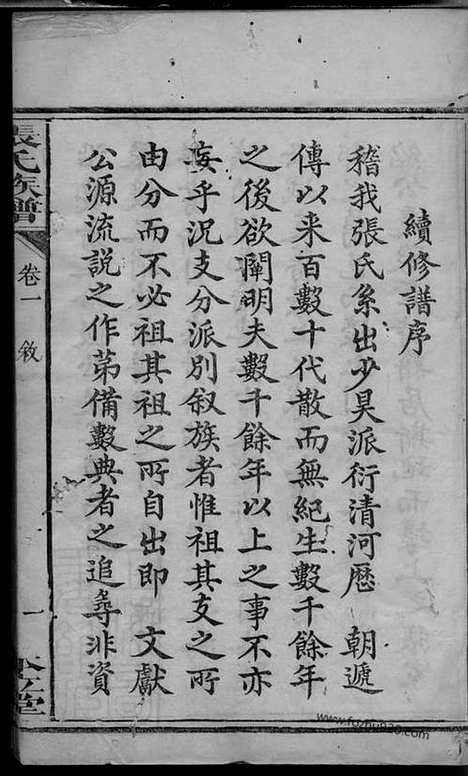 續修譜序
稽我張氏系出少昊派衍清河歷 朝遞
傳以来百數十代散而無紀生數千餘年
之後欲闡明夫數千餘年以上之事不亦
妄乎況支分派別叙族者惟祖其支之所
由分而不必祖其祖之所自出即 文獻
公源流說之作第備數典者之追尋非資
張氏族譜
卷一
敘
一
堂
www.fozhu920.com